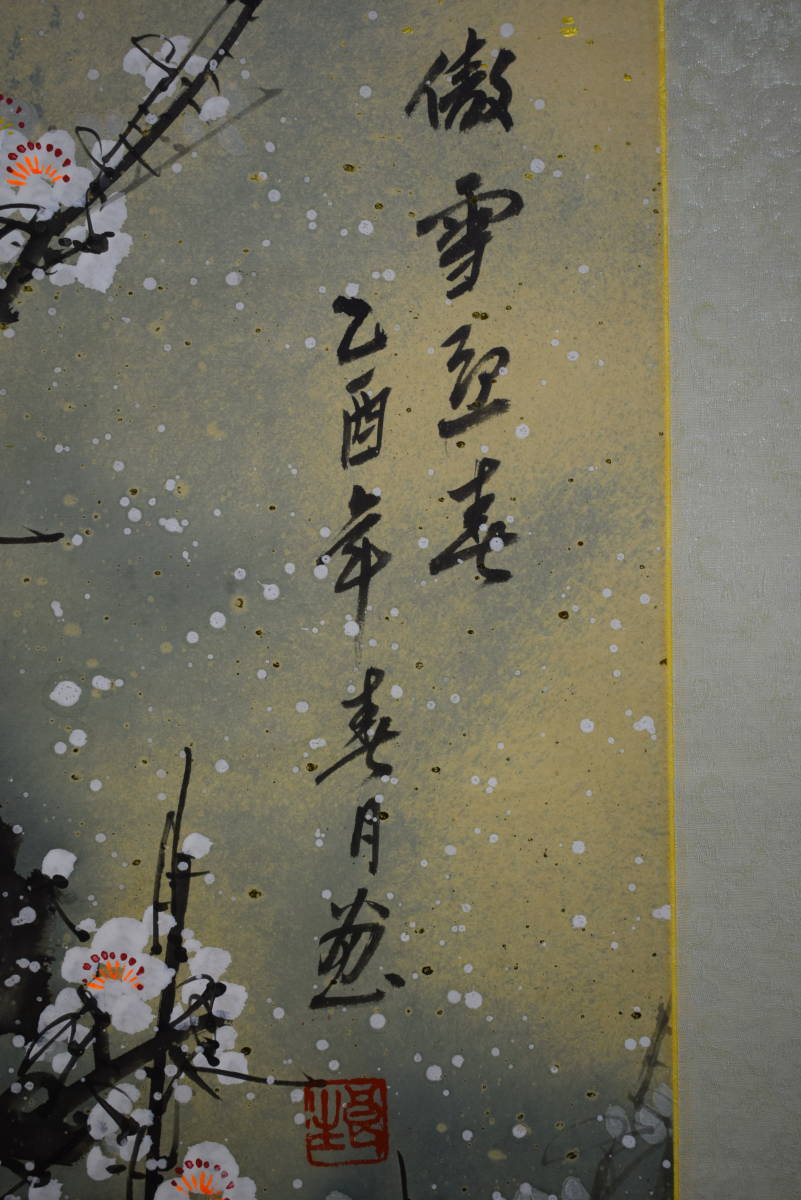 傲雪迎春
乙酉年春月画